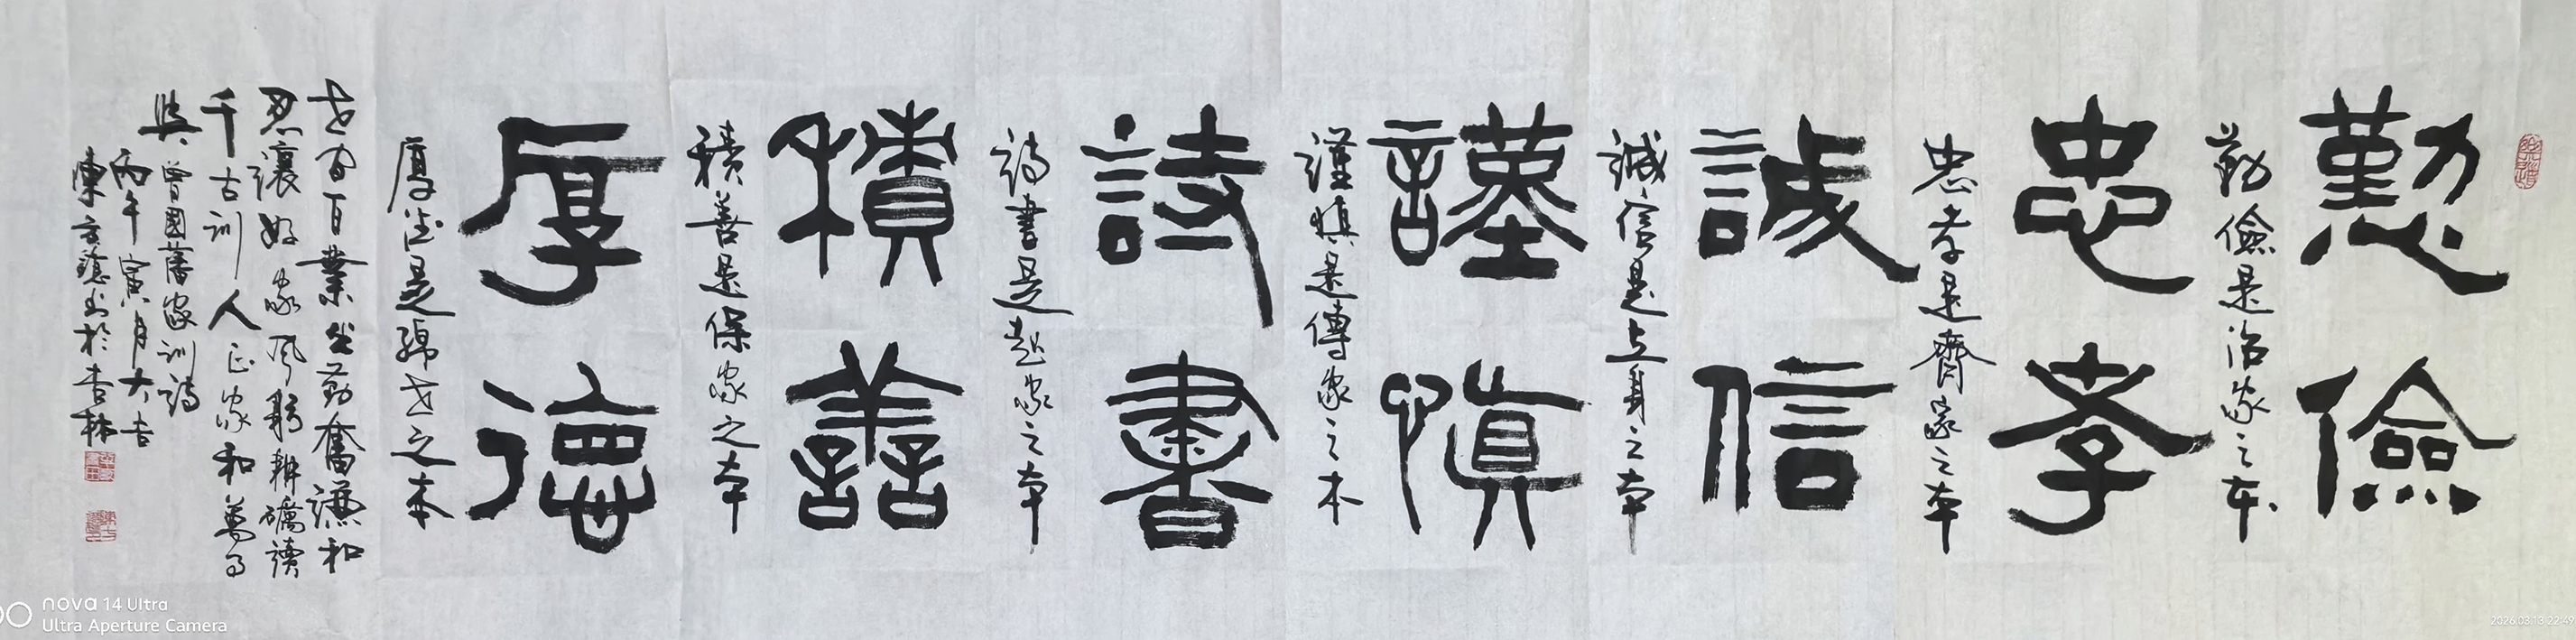 勤儉
勤儉是治家之本
忠孝
忠孝是齊家之本
誠信
誠信是立身之本
謹慎
謹慎是傳家之本
詩書
詩書是起家之本
積善
積善是保家之本
厚德
厚德是歸世之本
世間百業然勤奮謙和
忍讓好家風躬耕礪讀
千古訓人正家和萬事
興曾國藩家訓詩
丙午寅月大吉
東方龍書於書林
nova 14 Ultra
Ultra Aperture Camera